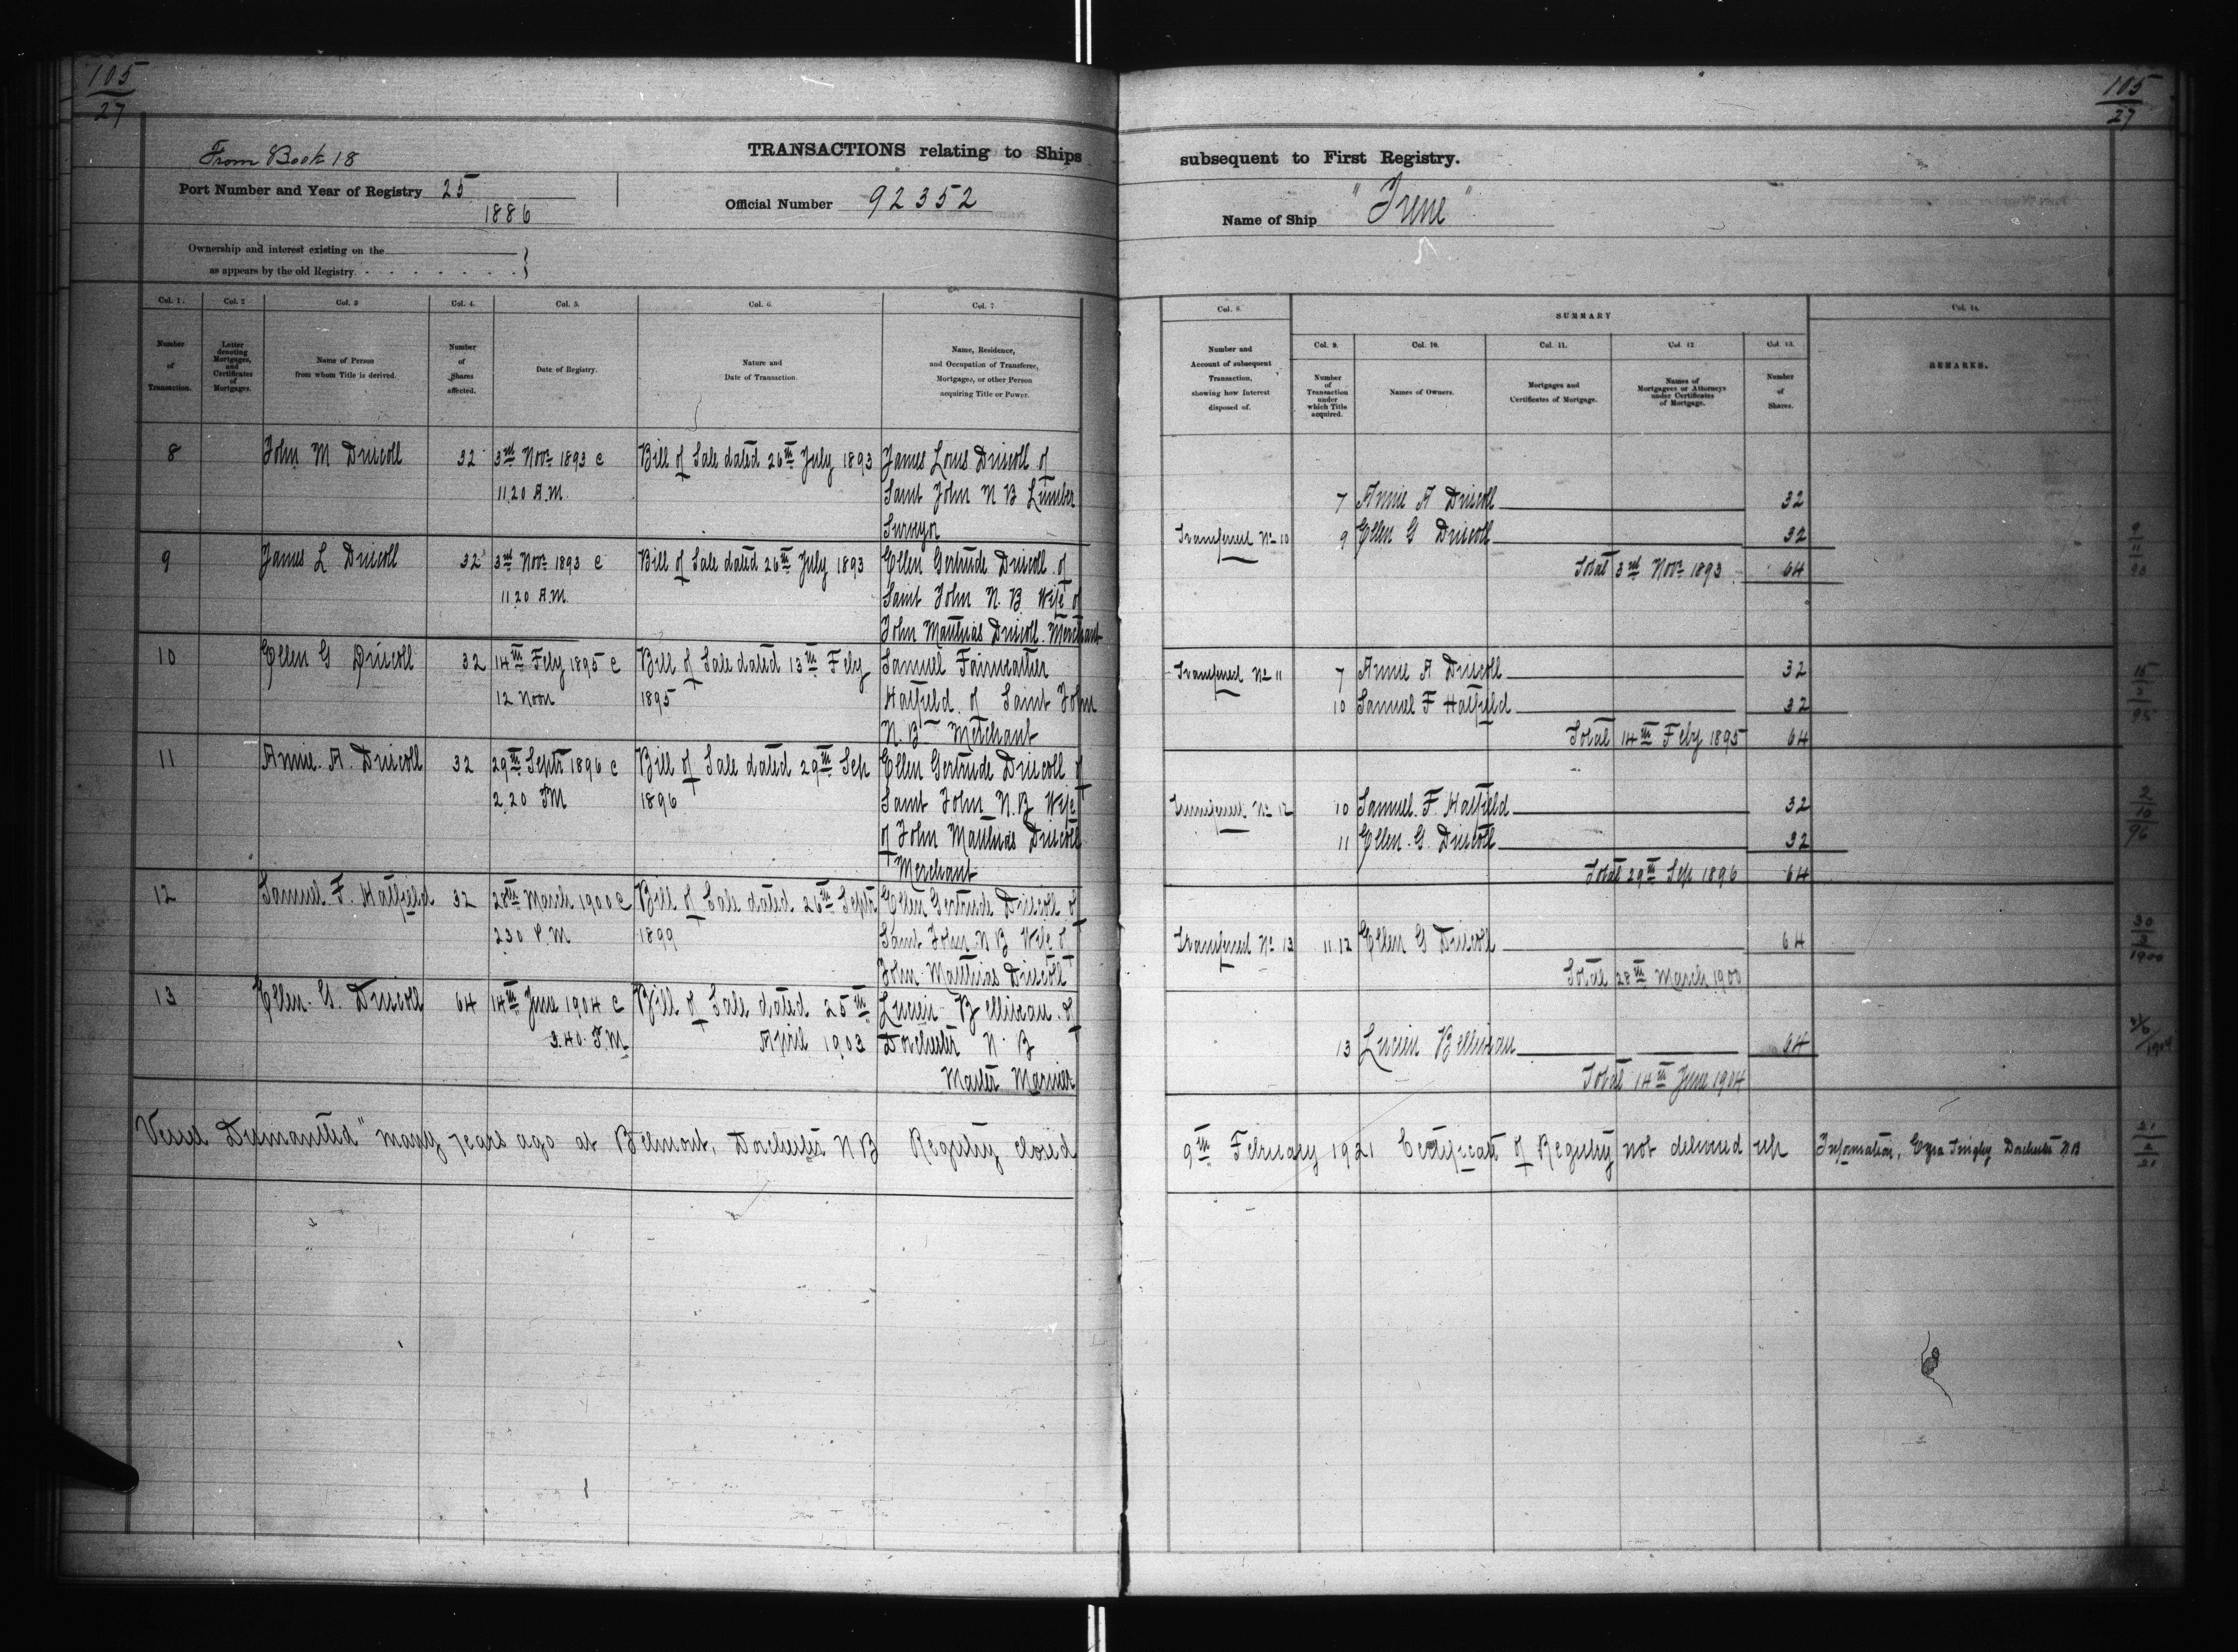 105
27
105
27
From Book 18
TRANSACTIONS relating to Ships
subsequent to First Registry.
Port Number and Year of Registry 25
1886
Official Number 92352
Name of Ship "Irene"
Ownership and interest existing on the
as appears by the old Registry.
Col. 1.
Number
of
Transaction.
Col. 2
Letter
denoting
Mortgages,
and
Certificates
of
Mortgages.
Col. 3
Name of Person
from whom Title is derived.
Col. 4.
Number
of
Shares
affected.
Col. 5.
Date of Registry.
Col. 6.
Nature and
Date of Transaction.
Col. 7
Name, Residence,
and Occupation of Transferee,
Mortgagee, or other Person
acquiring Title or Power.
Col. 8.
Number and
Account of subsequent
Transaction,
showing how Interest
disposed of.
SUMMARY
Col. 9.
Number
of
Transaction
under
which Title
acquired.
Col. 10.
Names of Owners.
Col. 11.
Mortgages and
Certificates of Mortgage.
Col. 12
Names of
Mortgagees or Attorneys
under Certificates
of Mortgage.
Col. 13.
Number
of
Shares.
Col. 14.
REMARKS.
8 John M Driscoll 32 3rd Novr 1893 @ Bill of Sale dated 26th July 1893 James Louis Driscoll of
11.20 A.M. Saint John N B Lumber
Surveyor
9 James L Driscoll 32 3rd Novr 1893 @ Bill of Sale dated 26th July 1893 Ellen Gertrude Driscoll of
11.20 A.M. Saint John N. B. Wife of
John Matthias Driscoll. Merchant
10 Ellen G Driscoll 32 14th Feby 1895 @ Bill of Sale dated 13th Feby Samuel Fairweather
12 Noon 1895 Hatfield of Saint John
N. B. Merchant
11 Annie. A. Driscoll 32 29th Septr 1896 @ Bill of Sale dated 29th Sep Ellen Gertrude Driscoll of
2.20 PM 1896 Saint John N.B Wife
of John Matthias Driscoll
Merchant
12 Samuel F. Hatfield 32 28th March 1900 @ Bill of Sale dated 26th Septr Ellen Gertrude Driscoll of
2.30 P.M 1899 Saint John N B Wife of
John Matthias Driscoll
13 Ellen. G. Driscoll 64 14th June 1904 @ Bill of Sale dated 25th Lucien Belliveau of
3.40. P.M. April 1903 Dorchester N. B
Master Mariner
7 Annie A Driscoll 32
Transferred No 10 9 Ellen G Driscoll 32
Total 3rd Novr 1893 64
Transferred No 11 7 Annie A Driscoll 32
10 Samuel F Hatfield 32
Total 14th Feby 1895 64
Transferred No 12 10 Samuel. F. Hatfield 32
11 Ellen. G. Driscoll 32
Total 29th Sep 1896 64
Transferred No 13 11.12 Ellen G Driscoll 64
Total 28th March 1900
13 Lucien Belliveau 64
Total 14th June 1904
Vessel Dismantled" many years ago at Belmont, Dorchester N B Registry closed
9th February 1921 Certificate of Registry not delivered up Information, Ezra Dorchester N B
15
2
95
2
10
96
30
3
1900
21
2
21